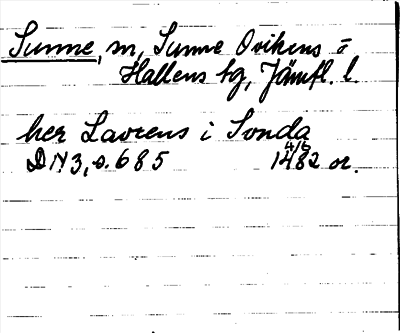 Sunne, sn, Sunne Ovikens o
Hallens tg, Jämtl. l.
her Laurens i Sonda
4/6
DN 3, s. 685 1482 or.